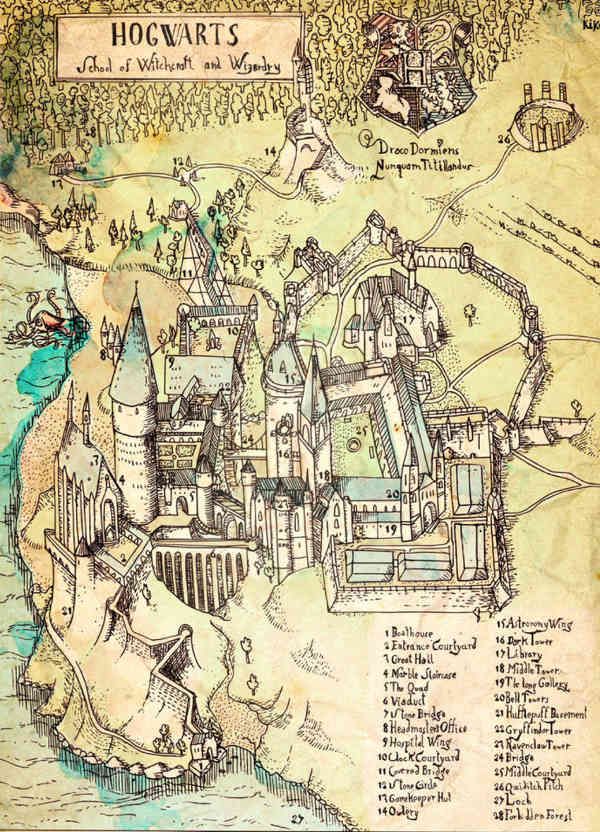 HOGWARTS
School of Witchcraft and Wizardry
H
Draco Dormiens
Nunquam Titillandus
28
26
14
12
13
11
17
10
8
9
15
24
16
7
4
5
18
20
19
2
6
21
27
1 Boathouse
2 Entrance Courtyard
3 Great Hall
4 Marble Staircase
5 The Quad
6 Viaduct
7 Stone Bridge
8 Headmasters Office
9 Hospital Wing
10 Clock Courtyard
11 Covered Bridge
12 Stone Circle
13 Gamekeeper Hut
14 Owlery
15 Astronomy Wing
16 Dark Tower
17 Library
18 Middle Tower
19 The long Gallery
20 Bell Towers
21 Hufflepuff Basement
22 Gryffindor Tower
23 Ravenclaw Tower
24 Bridge
25 Middle Courtyard
26 Quidditch Pitch
27 Loch
28 Forbidden Forest